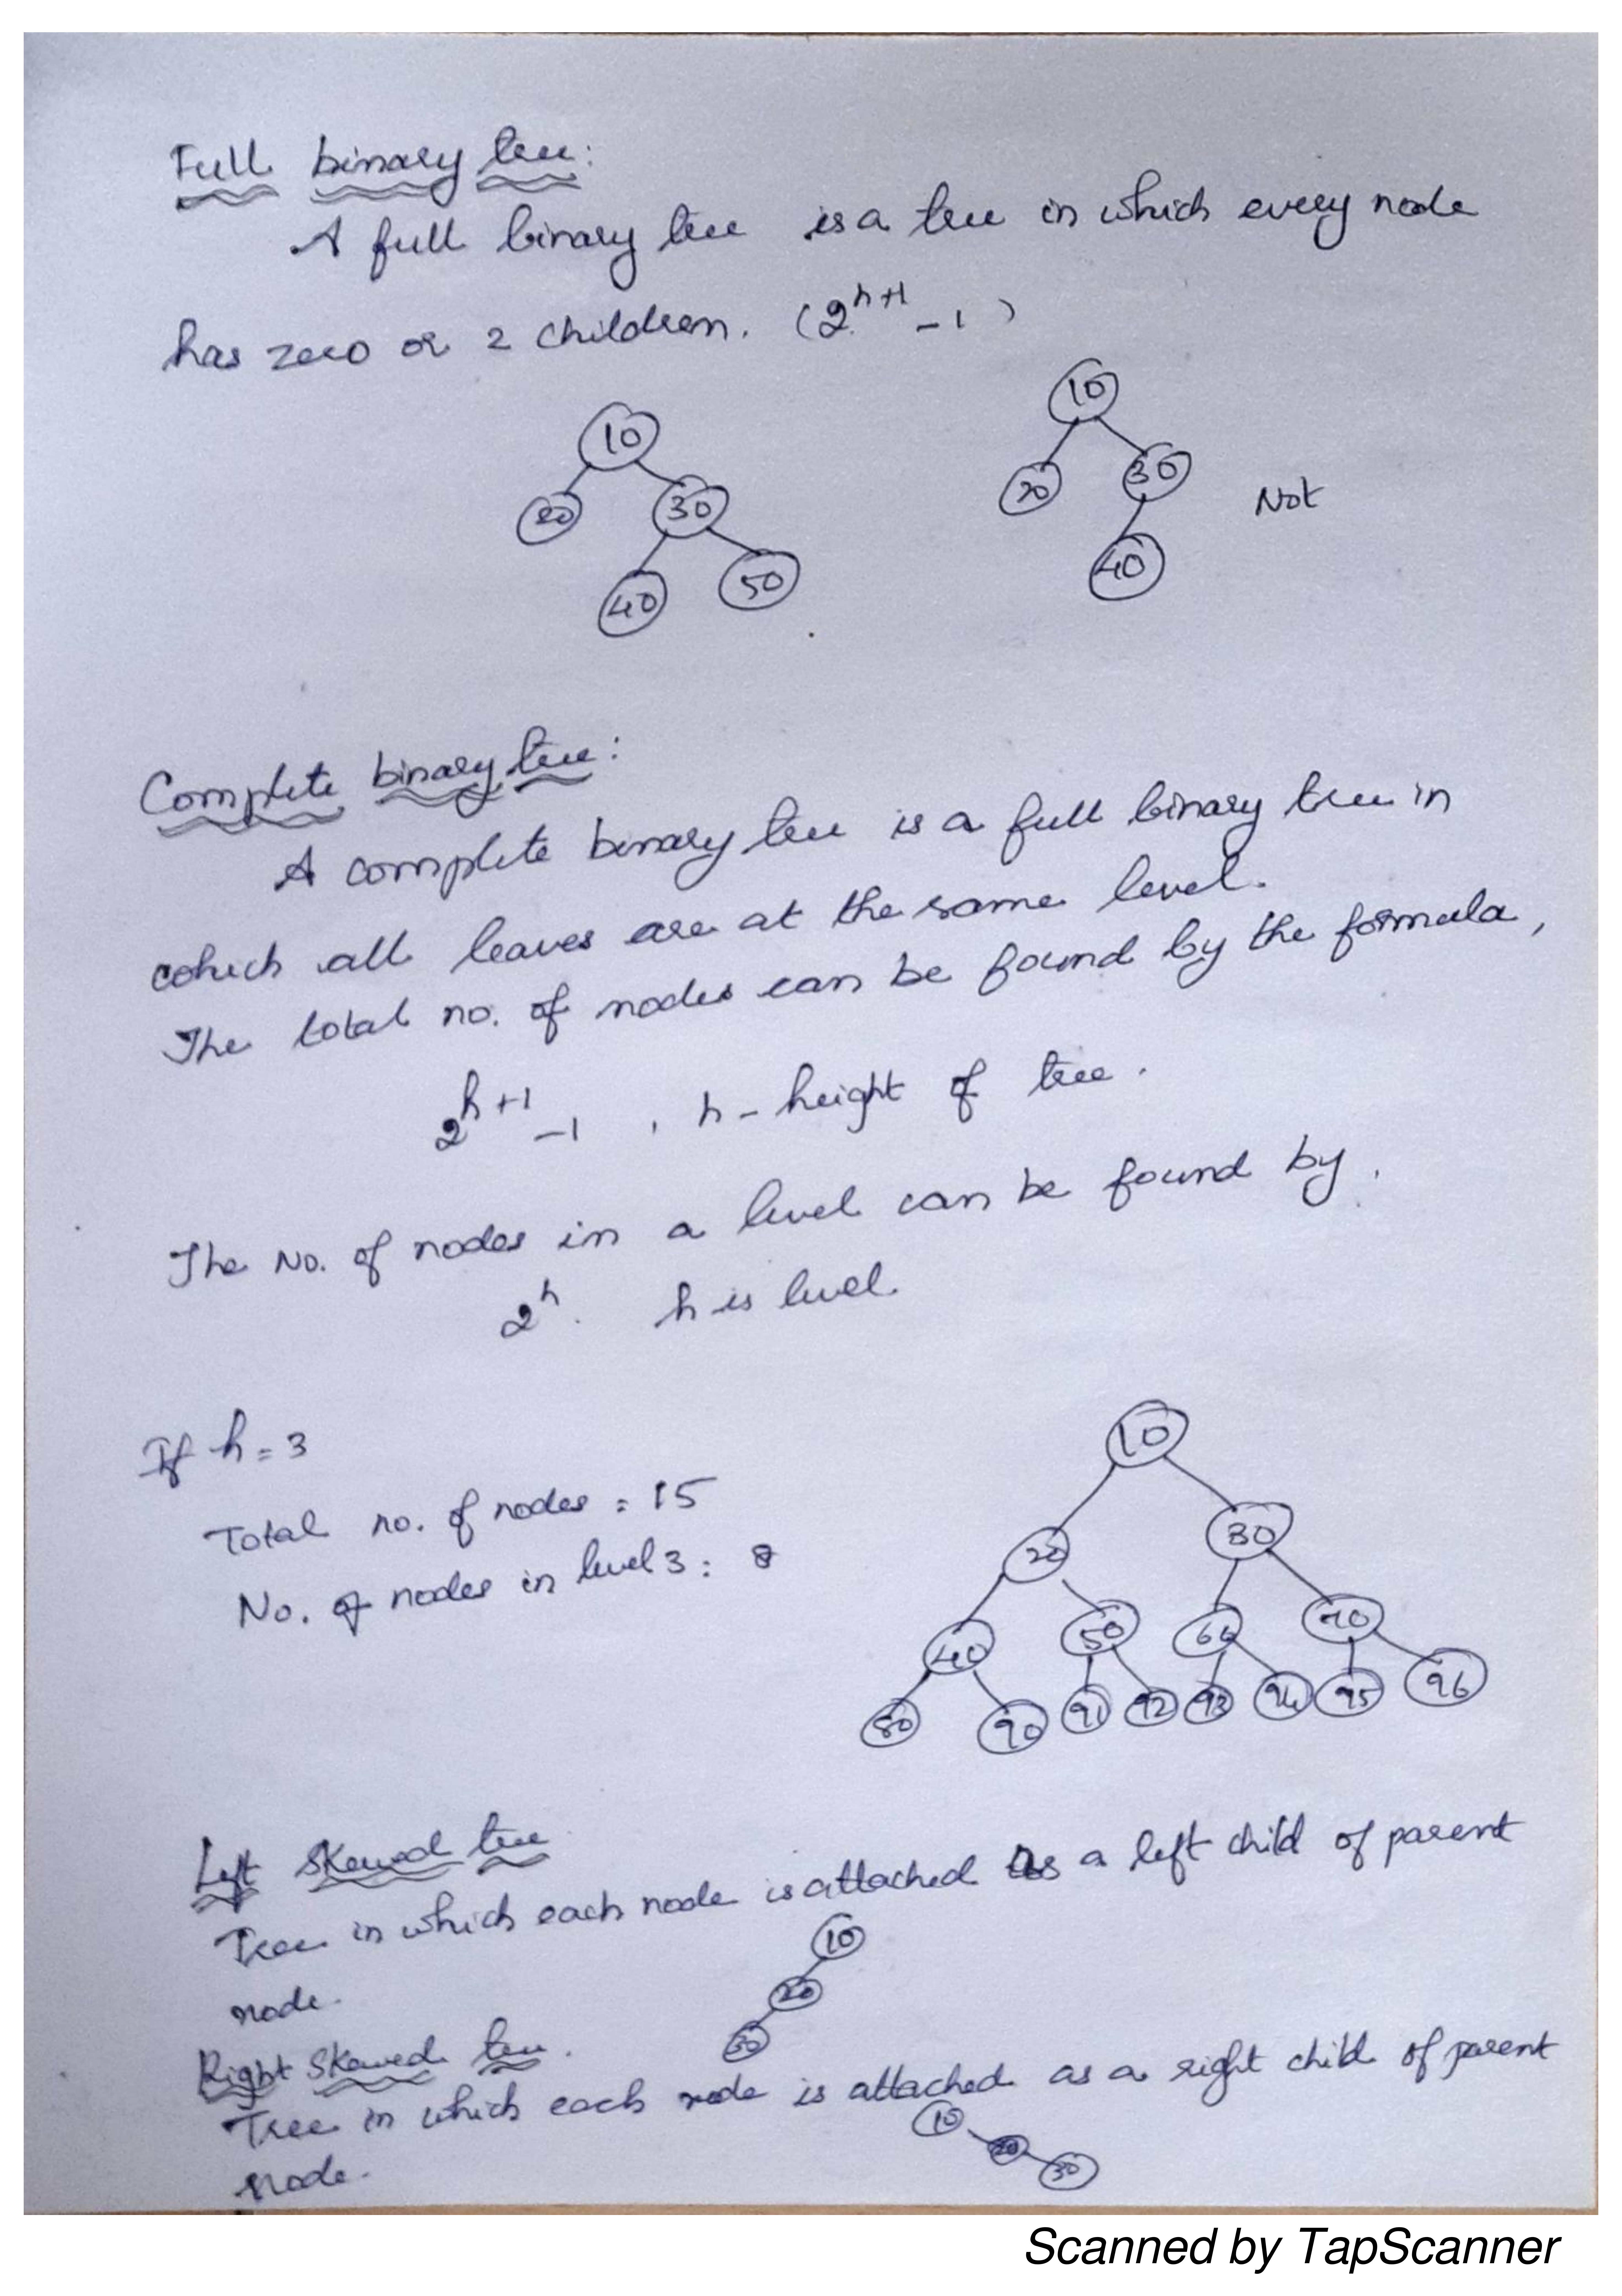 Full binary tree:
A full binary tree is a tree in which every node
has zero or 2 children. (2^h+1 - 1)
10
10
20
30
20
30
Not
40
50
40
Complete binary tree:
A complete binary tree is a full binary tree in
which all leaves are at the same level.
The total no. of nodes can be found by the formula,
2^h+1 - 1 , h - height of tree.
The No. of nodes in a level can be found by,
2^h. h is level.
If h = 3
Total no. of nodes = 15
No. of nodes in level 3 : 8
10
20
30
40
50
60
70
80
90
91
92
93
94
95
96
Left Skewed tree
Tree in which each node is attached as a left child of parent
node.
10
20
30
Right Skewed tree.
Tree in which each node is attached as a right child of parent
node.
10
20
30
Scanned by TapScanner